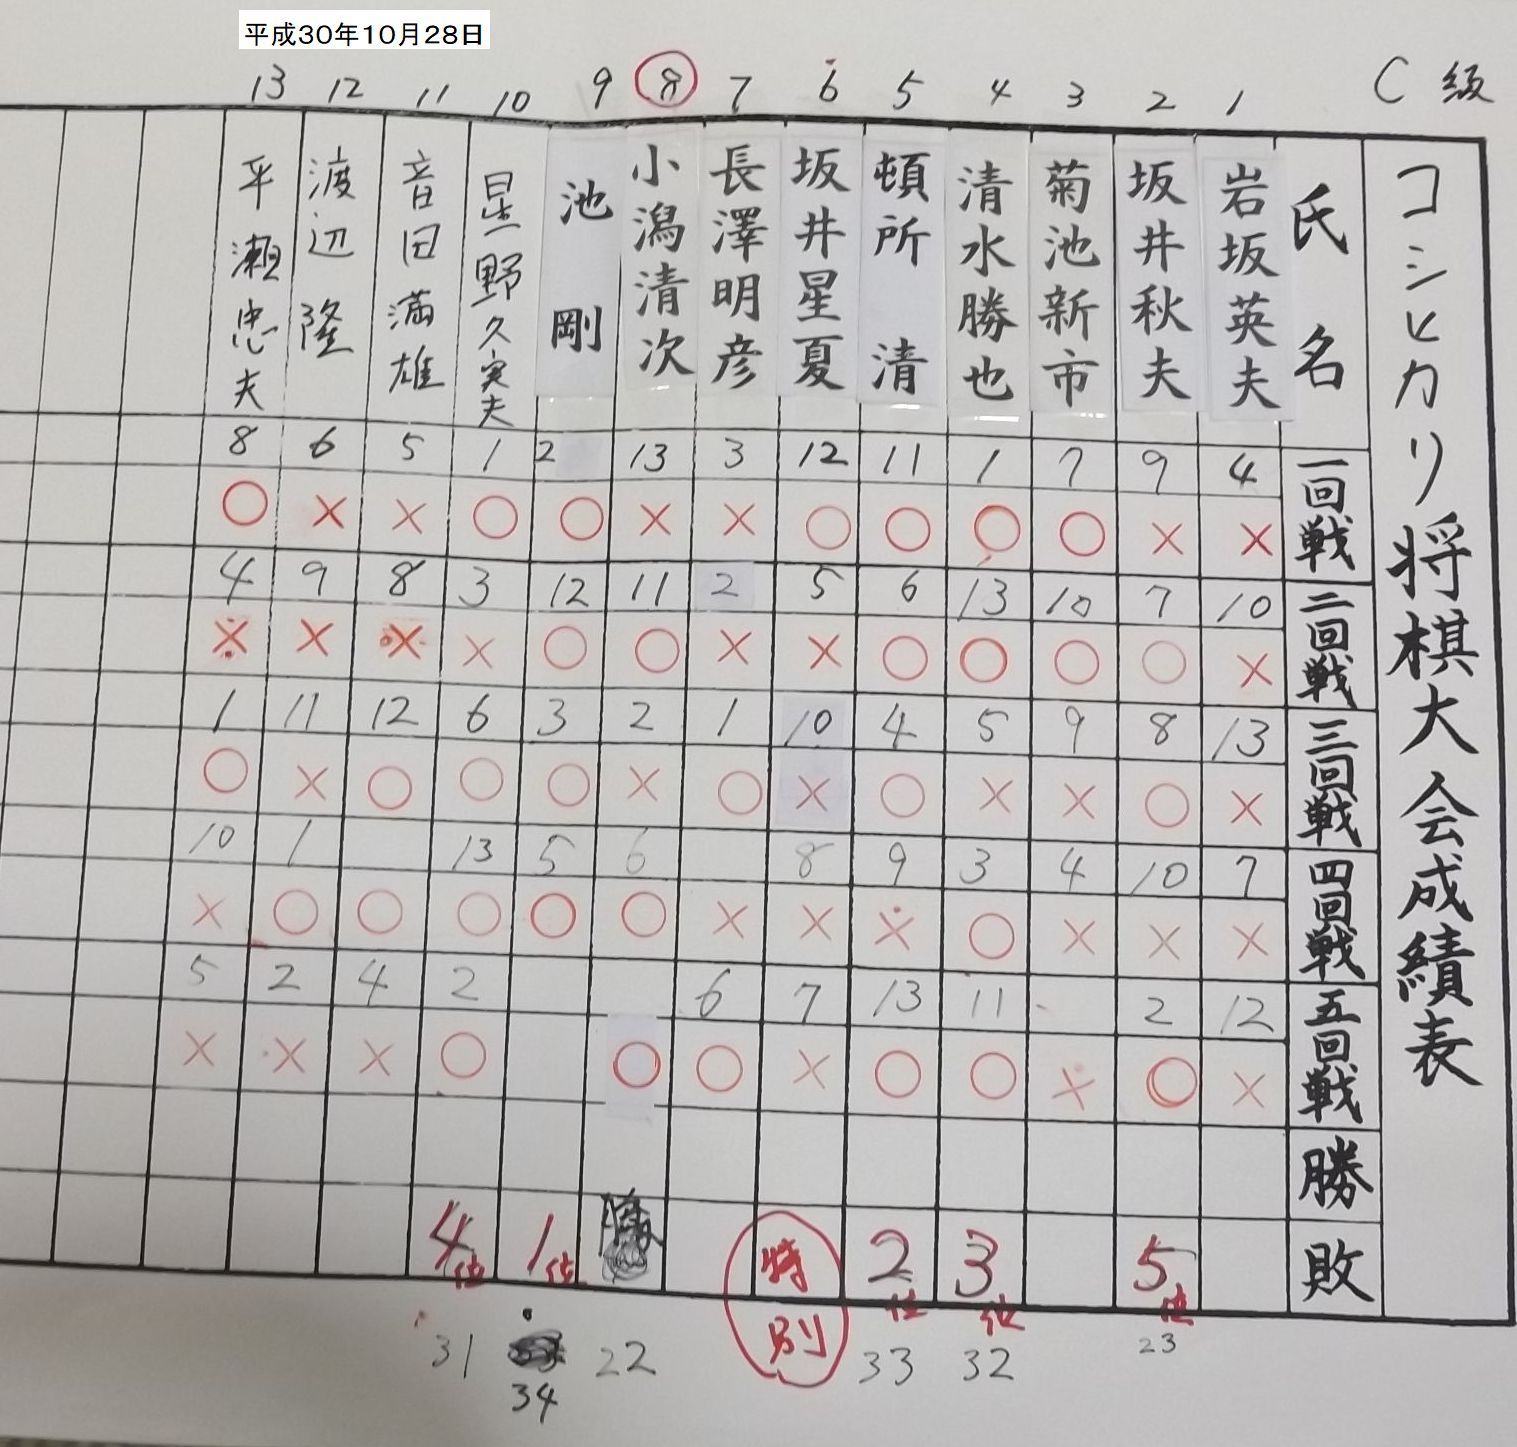 平成30年10月28日
C級
コシヒカリ将棋大会成績表
氏名
一回戦
二回戦
三回戦
四回戦
五回戦
勝
敗
1
岩坂英夫
4
×
10
×
13
×
7
×
12
×
2
坂井秋夫
9
×
7
○
8
○
10
×
2
○
5位
23
3
菊池新市
7
○
10
○
9
×
4
×
×
4
清水勝也
1
○
13
○
5
×
3
○
11
○
3位
32
5
頓所清
11
○
6
○
4
○
9
×
13
○
2位
33
6
坂井星夏
12
○
5
×
10
×
8
×
7
×
特別
7
長澤明彦
3
×
2
×
1
○
×
6
○
8
小潟清次
13
×
11
○
2
×
6
○
○
22
9
池剛
2
○
12
○
3
○
5
○
1位
34
10
星野久実夫
1
○
3
×
6
○
13
○
2
○
4位
31
11
音田満雄
5
×
8
×
12
○
○
4
×
12
渡辺隆
6
×
9
×
11
×
1
○
2
×
13
平瀬忠夫
8
○
4
×
1
○
10
×
5
×